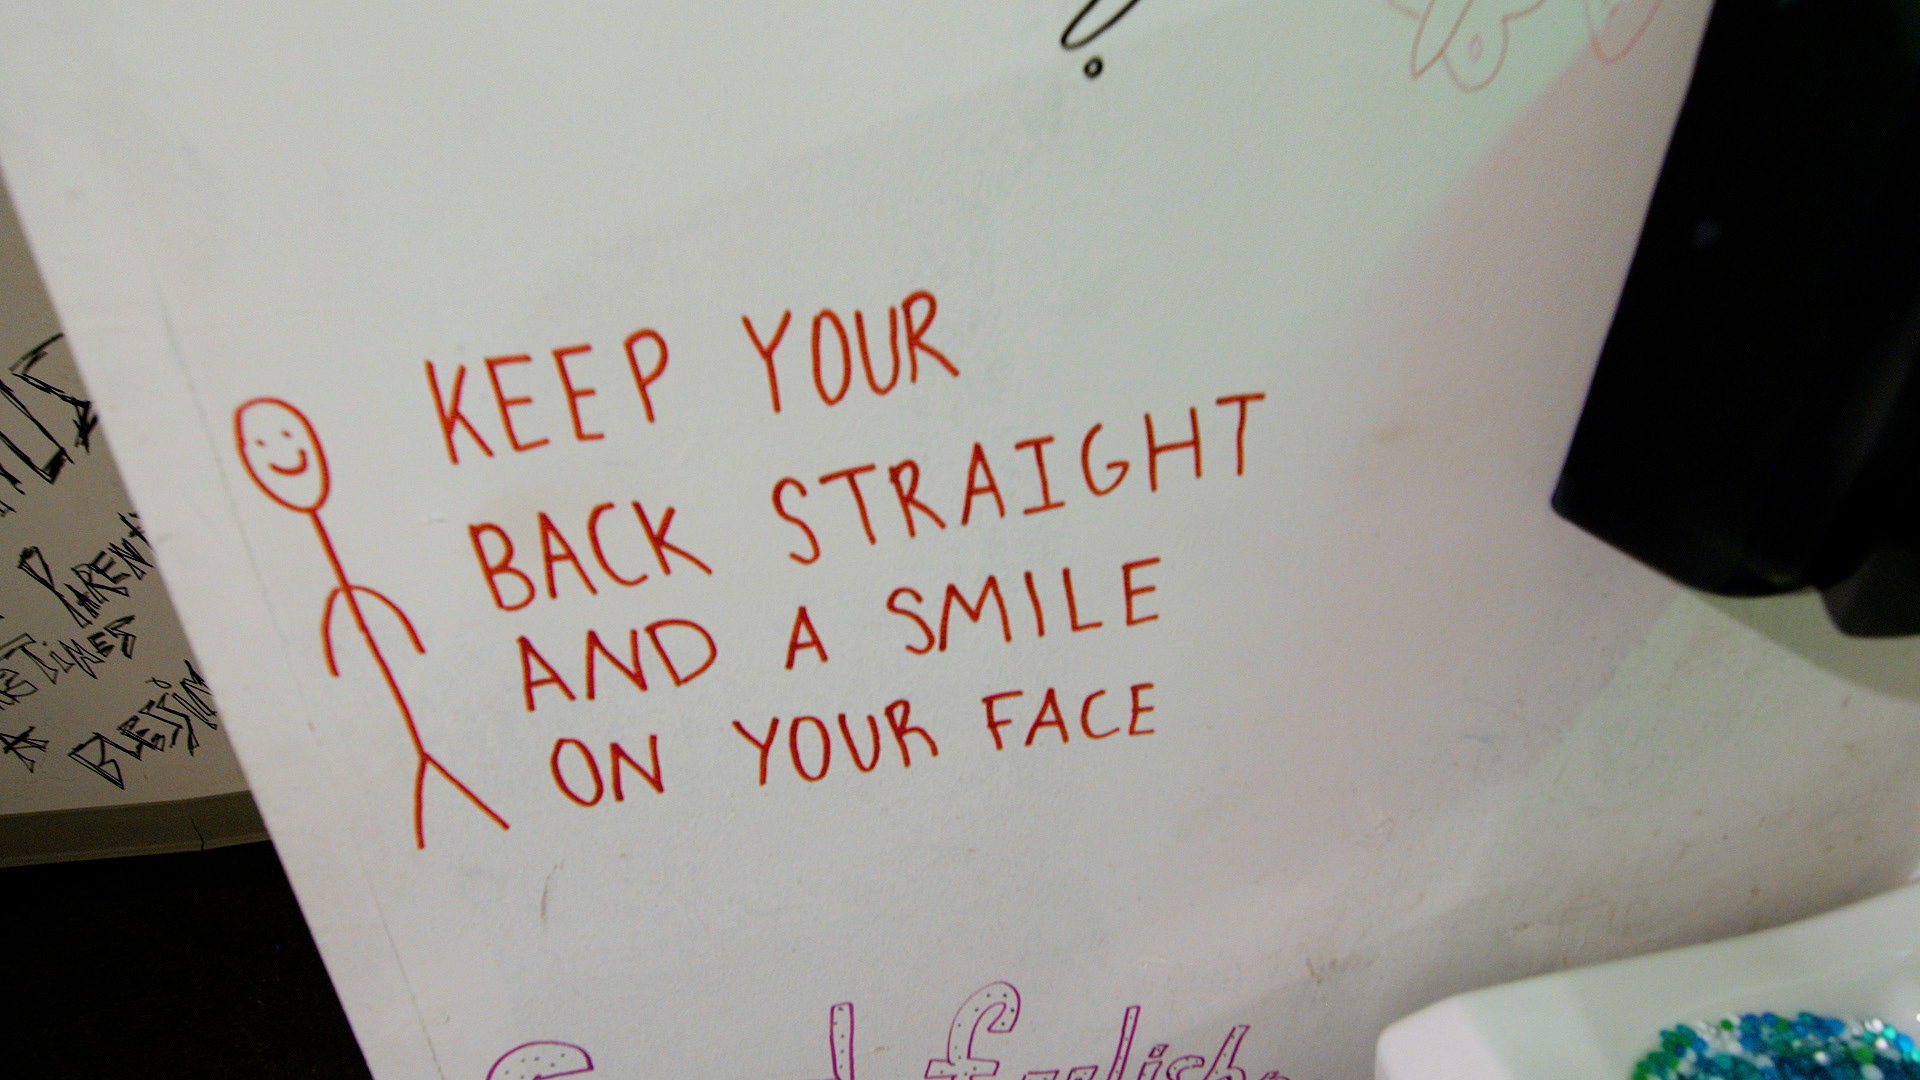 KEEP YOUR
BACK STRAIGHT
AND A SMILE
ON YOUR FACE
PARENT
TIMES
A BLESSING